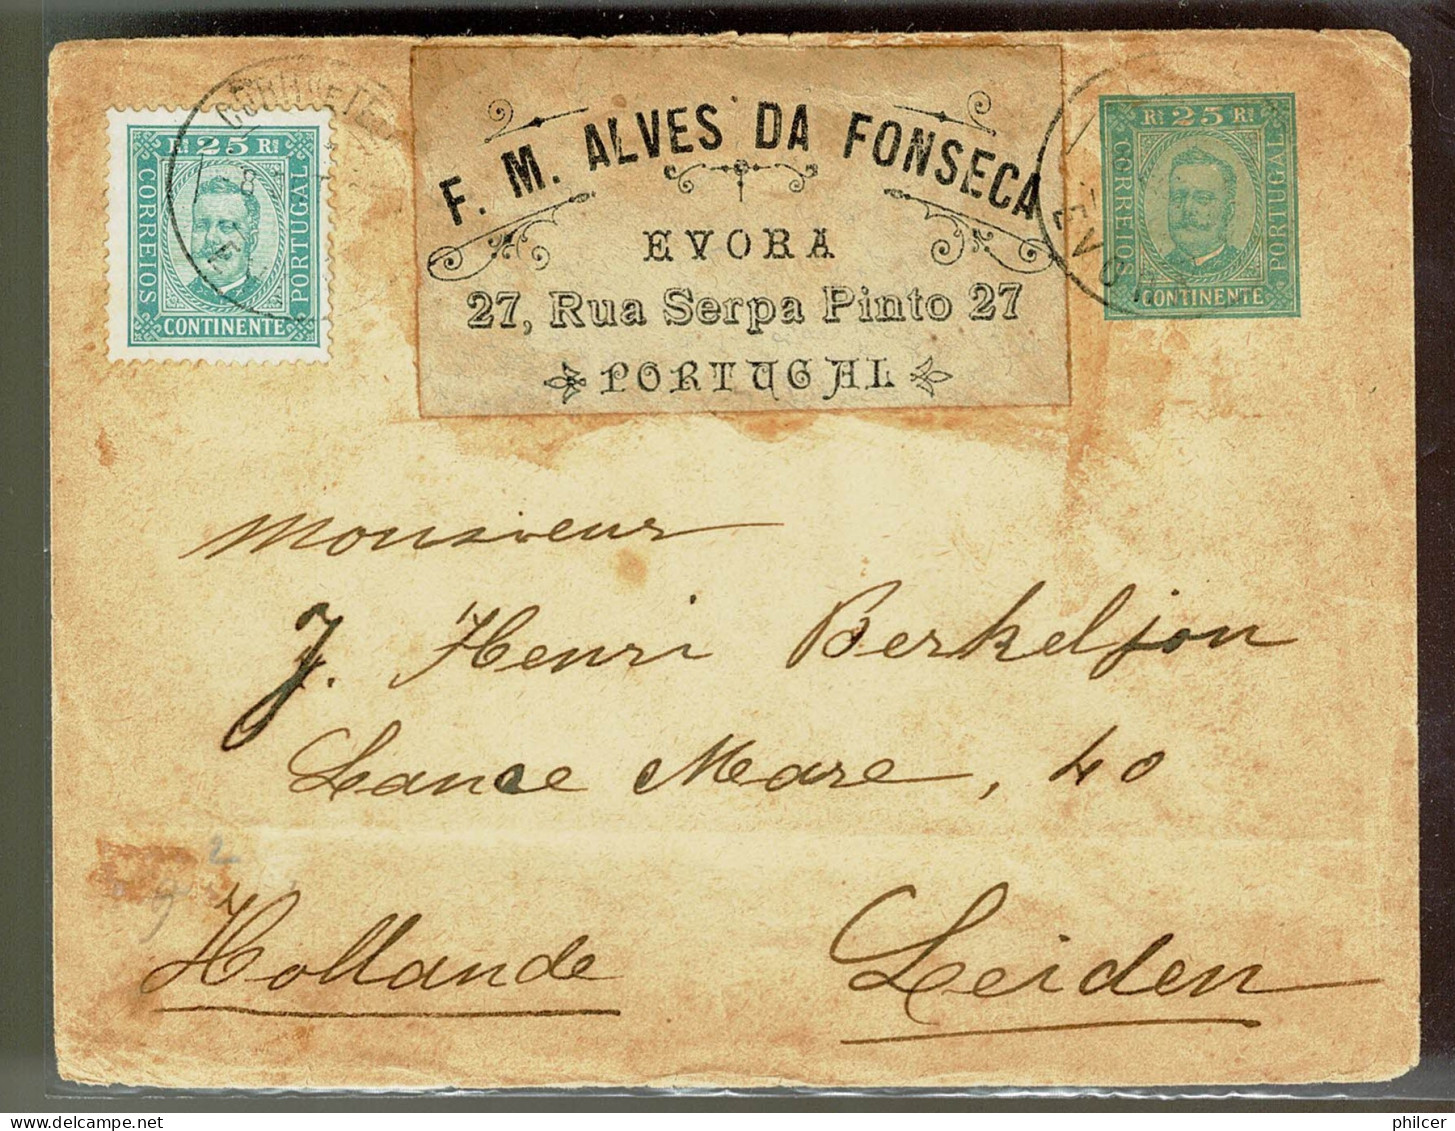 F. M. ALVES DA FONSECA
EVORA
27, Rua Serpa Pinto 27
PORTUGAL
RS 25 RS
CORREIOS
PORTUGAL
CONTINENTE
RS 25 RS
CORREIOS
PORTUGAL
CONTINENTE
EVORA
Monsieur
J. Henri Berkeljon
Lance Mare, 40
Hollande Leiden
philcer